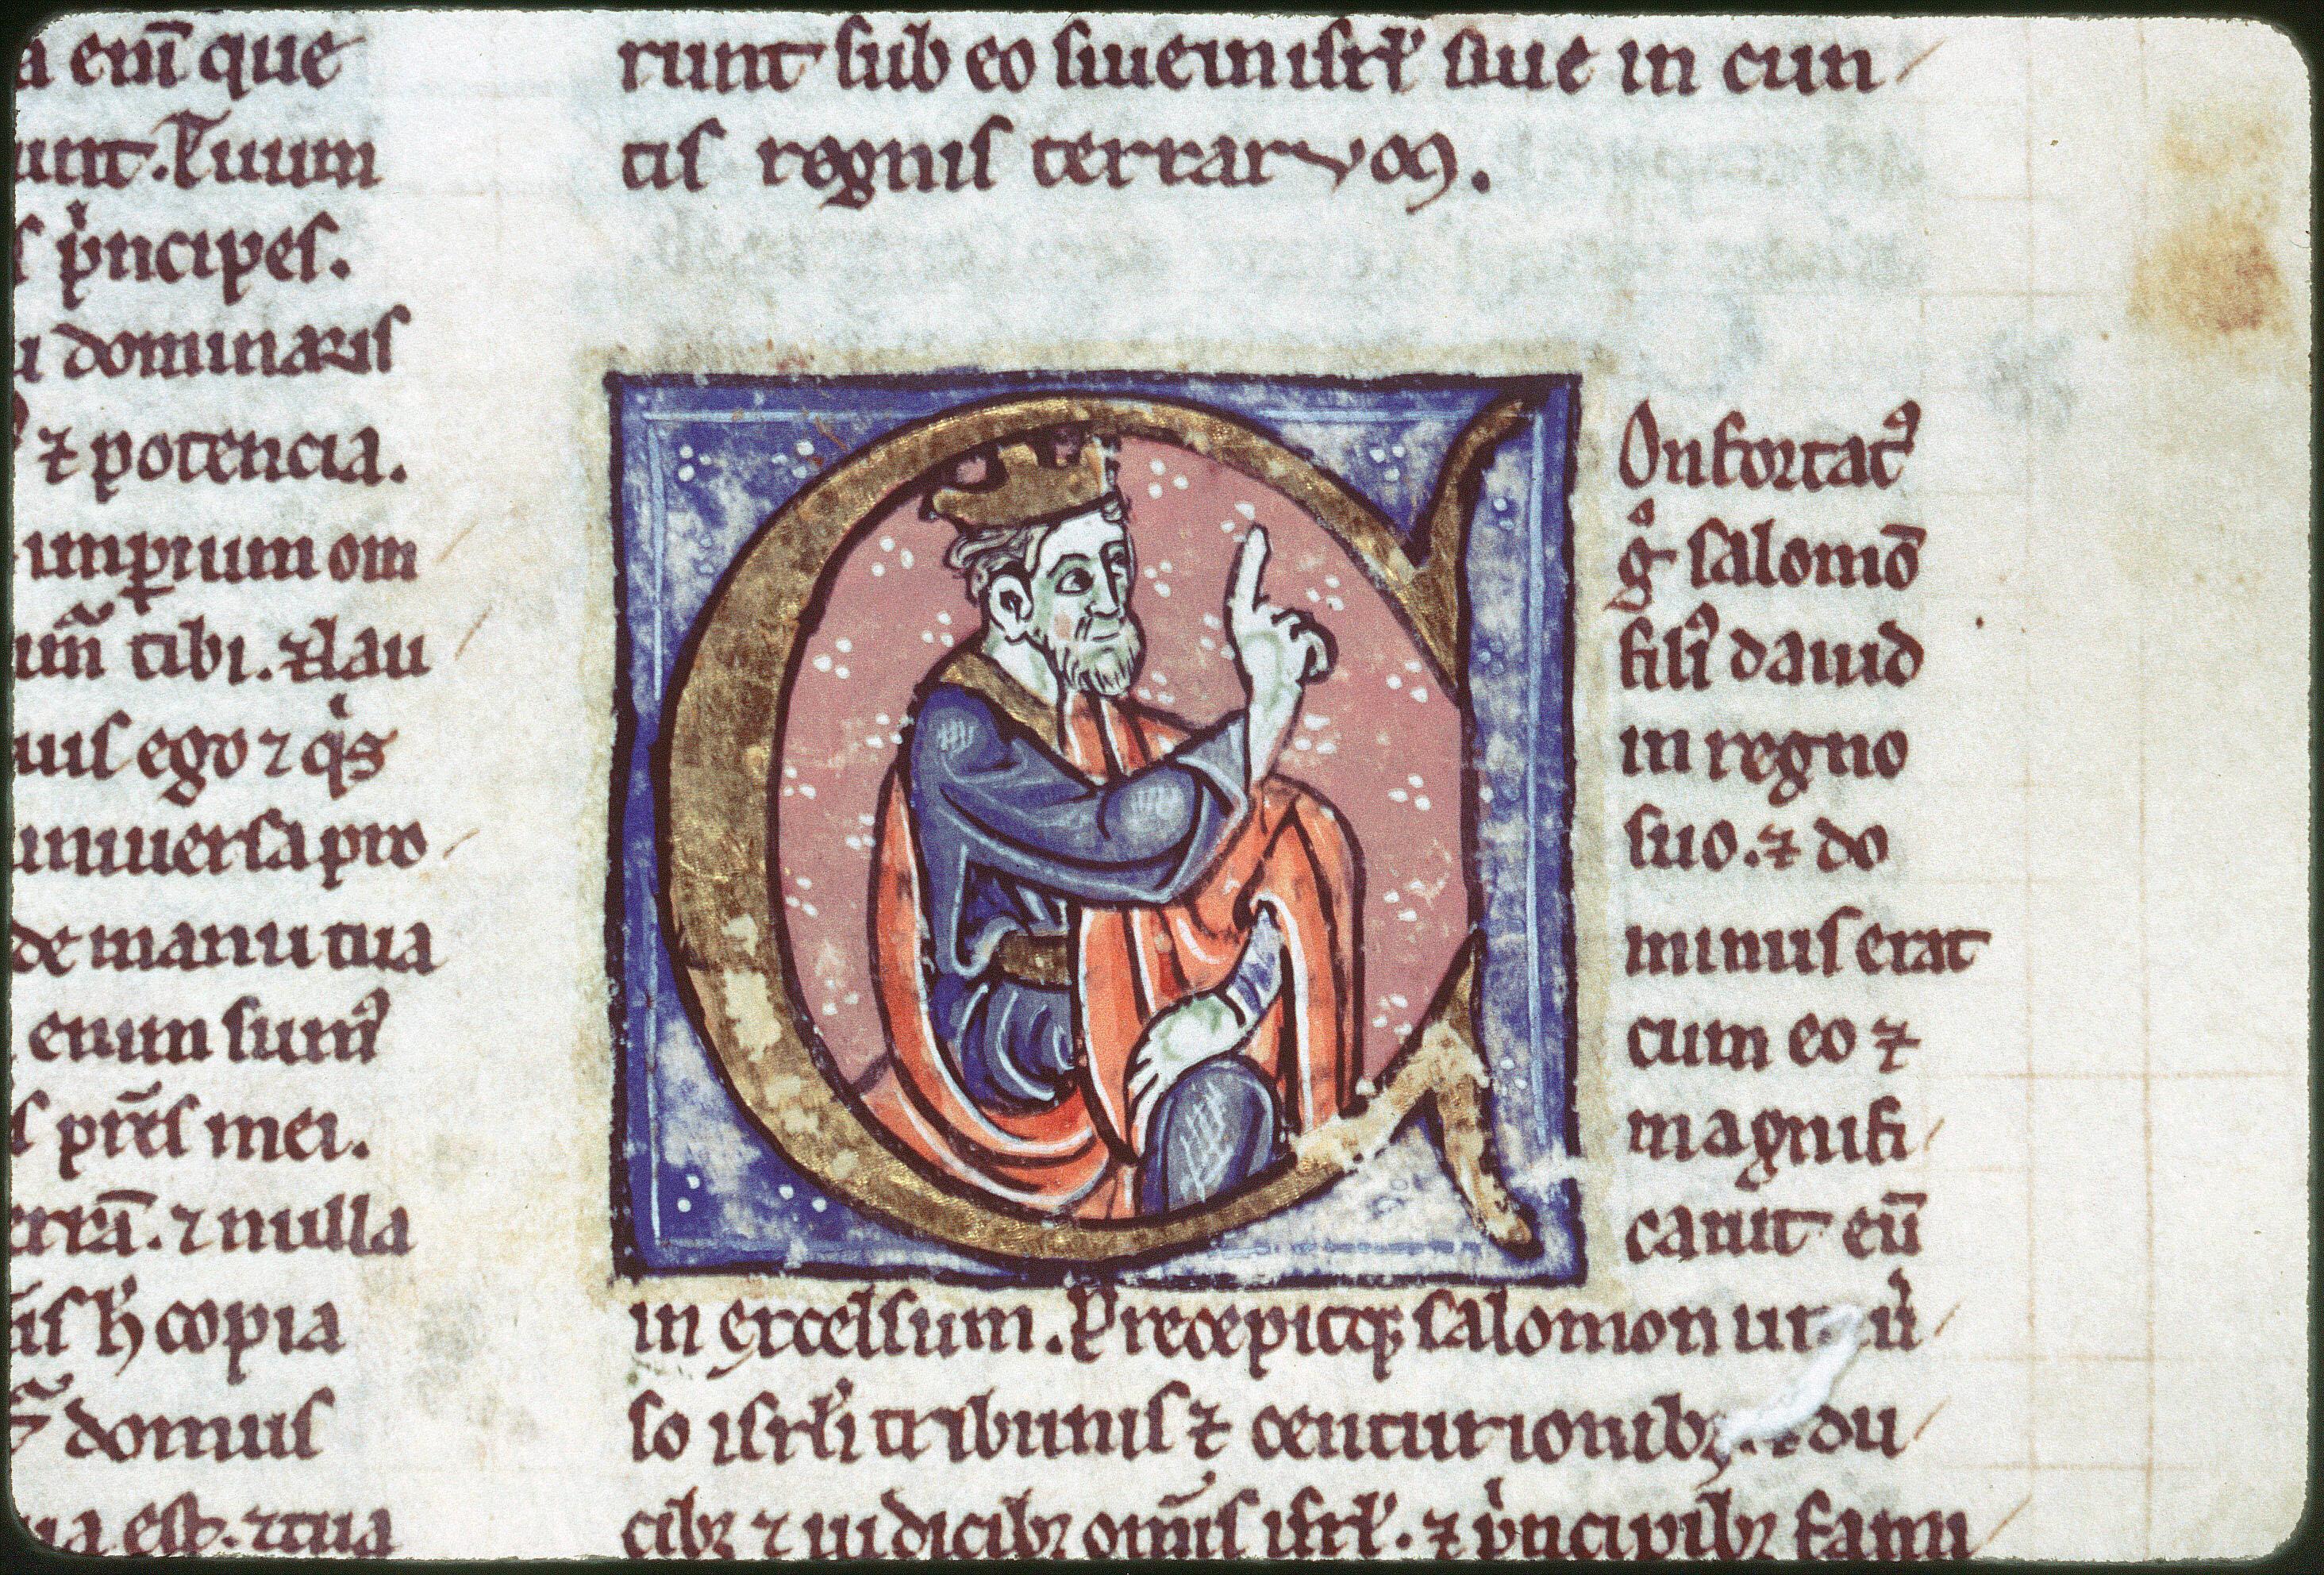 a em̄ que
unt. Tuum
s p̍ncipes.
u dominaris
⁊ potencia.
imꝑium om
um̄ tibi. ⁊ lau
uis ego ⁊ q̍s
uniuersa pro
de manu tua
enim sumꝰ
s pr̄es mei.
errā. ⁊ nulla
copia
domus
ua est. ⁊ tua
runt sub eo siue in isrl̓ siue in cun
tis regnis terrarvoꝝ.
Onfortatꝰ
gͦ salomō
filiꝰ dauid
in regno
suo. ⁊ do
minus erat
cum eo ⁊
magnifi
cauit eū
in excelsum. Precepitqꝫ salomon ut. uͥ
so isrl̓i tribunis ⁊ centurionibꝫ. ⁊ du
cibꝫ ⁊ iudicibꝫ om̄is isrl̓. ⁊ p̍ncipibꝫ fami